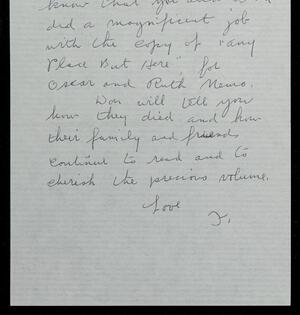 know that you
did a magnificent job
with the copy of "any
Place But Here", for
Oscar and Ruth Nemo.
Don will tell you
how they died and how
their family and friends
continue to read and to
cherish the precious volume.
Love